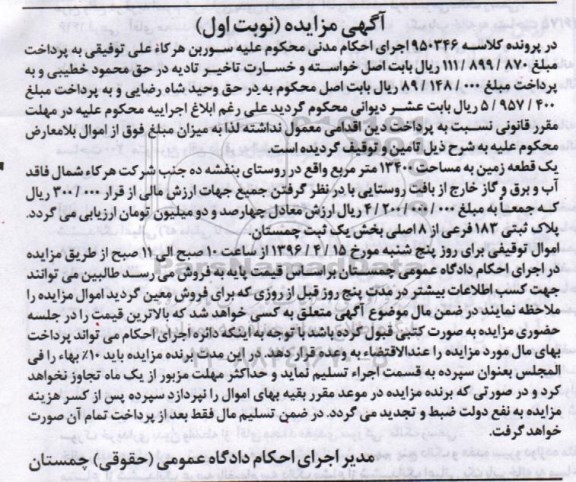 آگهی مزایده (نوبت اول)
در پرونده کلاسه ۹۵۰۳۴۶ اجرای احکام مدنی محکوم علیه سوربن هرکاء علی توفیقی به پرداخت
مبلغ ۸۷۰ / ۸۹۹ / ۱۱۱ ریال بابت اصل خواسته و خسارت تاخیر تادیه در حق محمود خطیبی و به
پرداخت مبلغ ۰۰۰ / ۱۴۸ / ۸۹ ریال بابت اصل محکوم به در حق وحید شاه رضایی و به پرداخت مبلغ
۴۰۰ / ۹۵۷ / ۵ ریال بابت عشر دیوانی محکوم گردید علی رغم ابلاغ اجراییه محکوم علیه در مهلت
مقرر قانونی نسبت به پرداخت دین اقدامی معمول نداشته لذا به میزان مبلغ فوق از اموال بلامعارض
محکوم علیه به شرح ذیل تامین و توقیف گردیده است.
یک قطعه زمین به مساحت ۱۳۴۰۰ متر مربع واقع در روستای بنفشه ده جنب شرکت هرکاء شمال فاقد
آب و برق و گاز خارج از بافت روستایی با در نظر گرفتن جمیع جهات ارزش مالی از قرار ۳۰۰/۰۰۰ ریال
که جمعاً به مبلغ ۴/۲۰۰/۰۰۰/۰۰۰ ریال ارزش معادل چهارصد و دو میلیون تومان ارزیابی می گردد.
پلاک ثبتی ۱۸۳ فرعی از ۸ اصلی بخش یک ثبت چمستان.
اموال توقیفی برای روز پنج شنبه مورخ ۱۵ / ۴ / ۱۳۹۶ از ساعت ۱۰ صبح الی ۱۱ صبح از طریق مزایده
در اجرای احکام دادگاه عمومی چمستان بر اساس قیمت پایه به فروش می رسد طالبین می توانند
جهت کسب اطلاعات بیشتر در مدت پنج روز قبل از روزی که برای فروش معین گردید اموال مزایده را
ملاحظه نمایند در ضمن مال موضوع آگهی متعلق به کسی خواهد شد که بالاترین قیمت را در جلسه
حضوری مزایده به صورت کتبی قبول کرده باشد با توجه به اینکه دائره اجرای احکام می تواند پرداخت
بهای مال مورد مزایده را عندالاقتضاء به وعده قرار دهد. در این مدت برنده مزایده باید ۱۰٪ بهاء را فی
المجلس بعنوان سپرده به قسمت اجراء تسلیم نماید و حداکثر مهلت مزبور از یک ماه تجاوز نخواهد
کرد و در صورتی که برنده مزایده در موعد مقرر بقیه بهای اموال را نپردازد سپرده پس از کسر هزینه
مزایده به نفع دولت ضبط و تجدید می گردد. در ضمن تسلیم مال فقط بعد از پرداخت تمام آن صورت
خواهد گرفت.
مدیر اجرای احکام دادگاه عمومی (حقوقی) چمستان